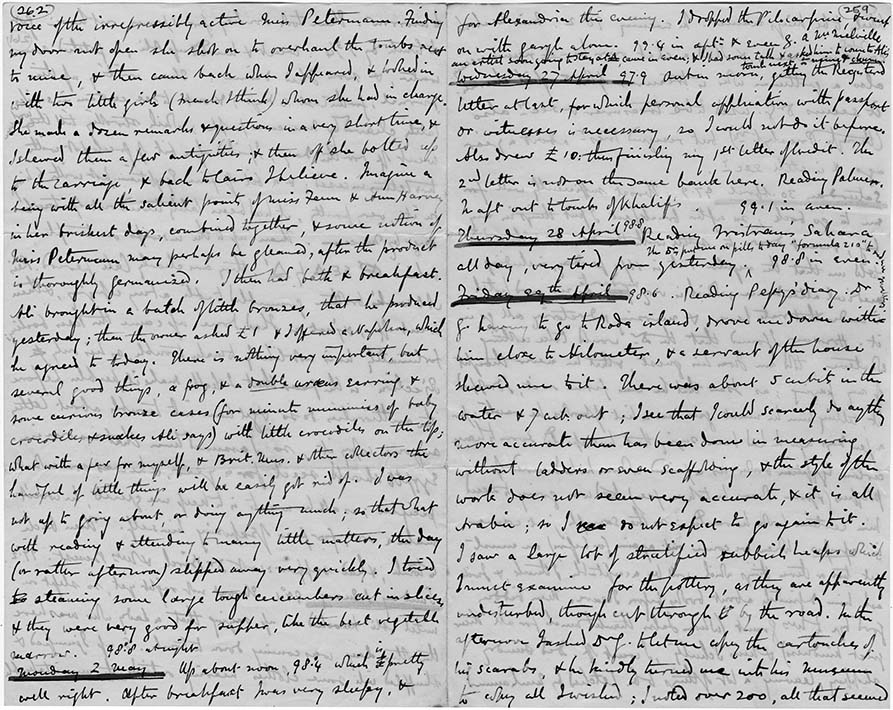 262
voice of the irrepressibly active Miss Petermann. Finding
my door not open she shot on to overhaul the tombs next
to mine, & then came back when I appeared, & looked in
with two little girls (nench I think) whom she had in charge.
She made a dozen remarks & questions in a very short time, &
I shewed them a few antiquities; & then off she bolted up
to the carriage, & back to Cairo I believe. Imagine a
being with all the salient points of Miss Zenn & Ann Harvey
in her briskest days, combined together, & some notion of
Miss Petermann may perhaps be gleaned, after the product
is thoroughly germanized. I then had bath & breakfast.
Ali brought in a batch of little bronzes, that he produced
yesterday; then the owner asked £1 & I offered a Napoleon, which
he agreed to today. There is nothing very important, but
several good things, a frog, & a double uraeus earring, &
some curious bronze cases (for minute mummies of baby
crocodiles & snakes Ali says) with little crocodiles on the top;
what with a few for myself, & Brit. Mus. & other collectors the
handful of little things will be easily got rid of. I was
not up to going about, or doing anything much; so that what
with reading & attending to many little matters, the day
(or rather afternoon) slipped away very quickly. I tried
steaming some large tough cucumbers cut in slices
& they were very good for supper, like the best vegetable
marrow. 98.8 at night
Monday 2 May Up about noon, 98.4 which is pretty
well right. After breakfast I was very sleepy, &
259
for Alexandria this evening. I dropped the Pilocarpine, & went
on with gargle alone. 99.4 in aftn & even g. a Mr Melville
an artist soon going to stay at came in even; & I had some talk & asked him to come to Ali's
tomb next to mine &
Wednesday 27 April 97.9 out in morn getting the Registered
letter at last, for which personal application with passport
or witnesses is necessary, so I could not do it before.
Also drew £10: thus finishing my 1st letter of credit. The
2nd letter is not on the same bank here. Reading Palmer.
In aft out to tombs of Khalifs 99.1 in even.
Thursday 28 April 98.8 Reading Tristram's Sahara
The Dr put me on pills to day "formula 210"
all day, very tired from yesterday 98.8 in even.
Friday 29th April 98.6. Reading Pepys' diary. Dr
G. having to go to Roda island, drove me down with
him close to Nilometer, & a servant of the house
shewed me to it. There was about 5 cubits in the
water & 7 cub. out; I see that I could scarcely do anything
more accurate than has been done in measuring
without ladders or even scaffolding, & the style of the
work does not seem very accurate, & it is all
Arabic; so I do not expect to go again to it.
I saw a large lot of stratified rubbish heaps which
I must examine for the pottery, as they are apparently
undisturbed, though cut through by the road. In the
afternoon I asked Dr G. to let me copy the cartouches of
his scarabs, & he kindly turned me into his museum
to copy all I wished; I noted over 200, all that seemed